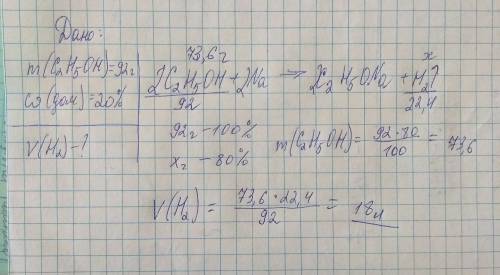 Дано:
m(C₂H₅OH)=92г
ω(дом)=20%
V(H₂)-?
73,6г x
2C₂H₅OH + 2Na → 2C₂H₅ONa + H₂↑
92 22,4
92г - 100%
xг - 80%
m(C₂H₅OH) = 92·80/100 = 73,6
V(H₂) = 73,6·22,4/92 = 18л